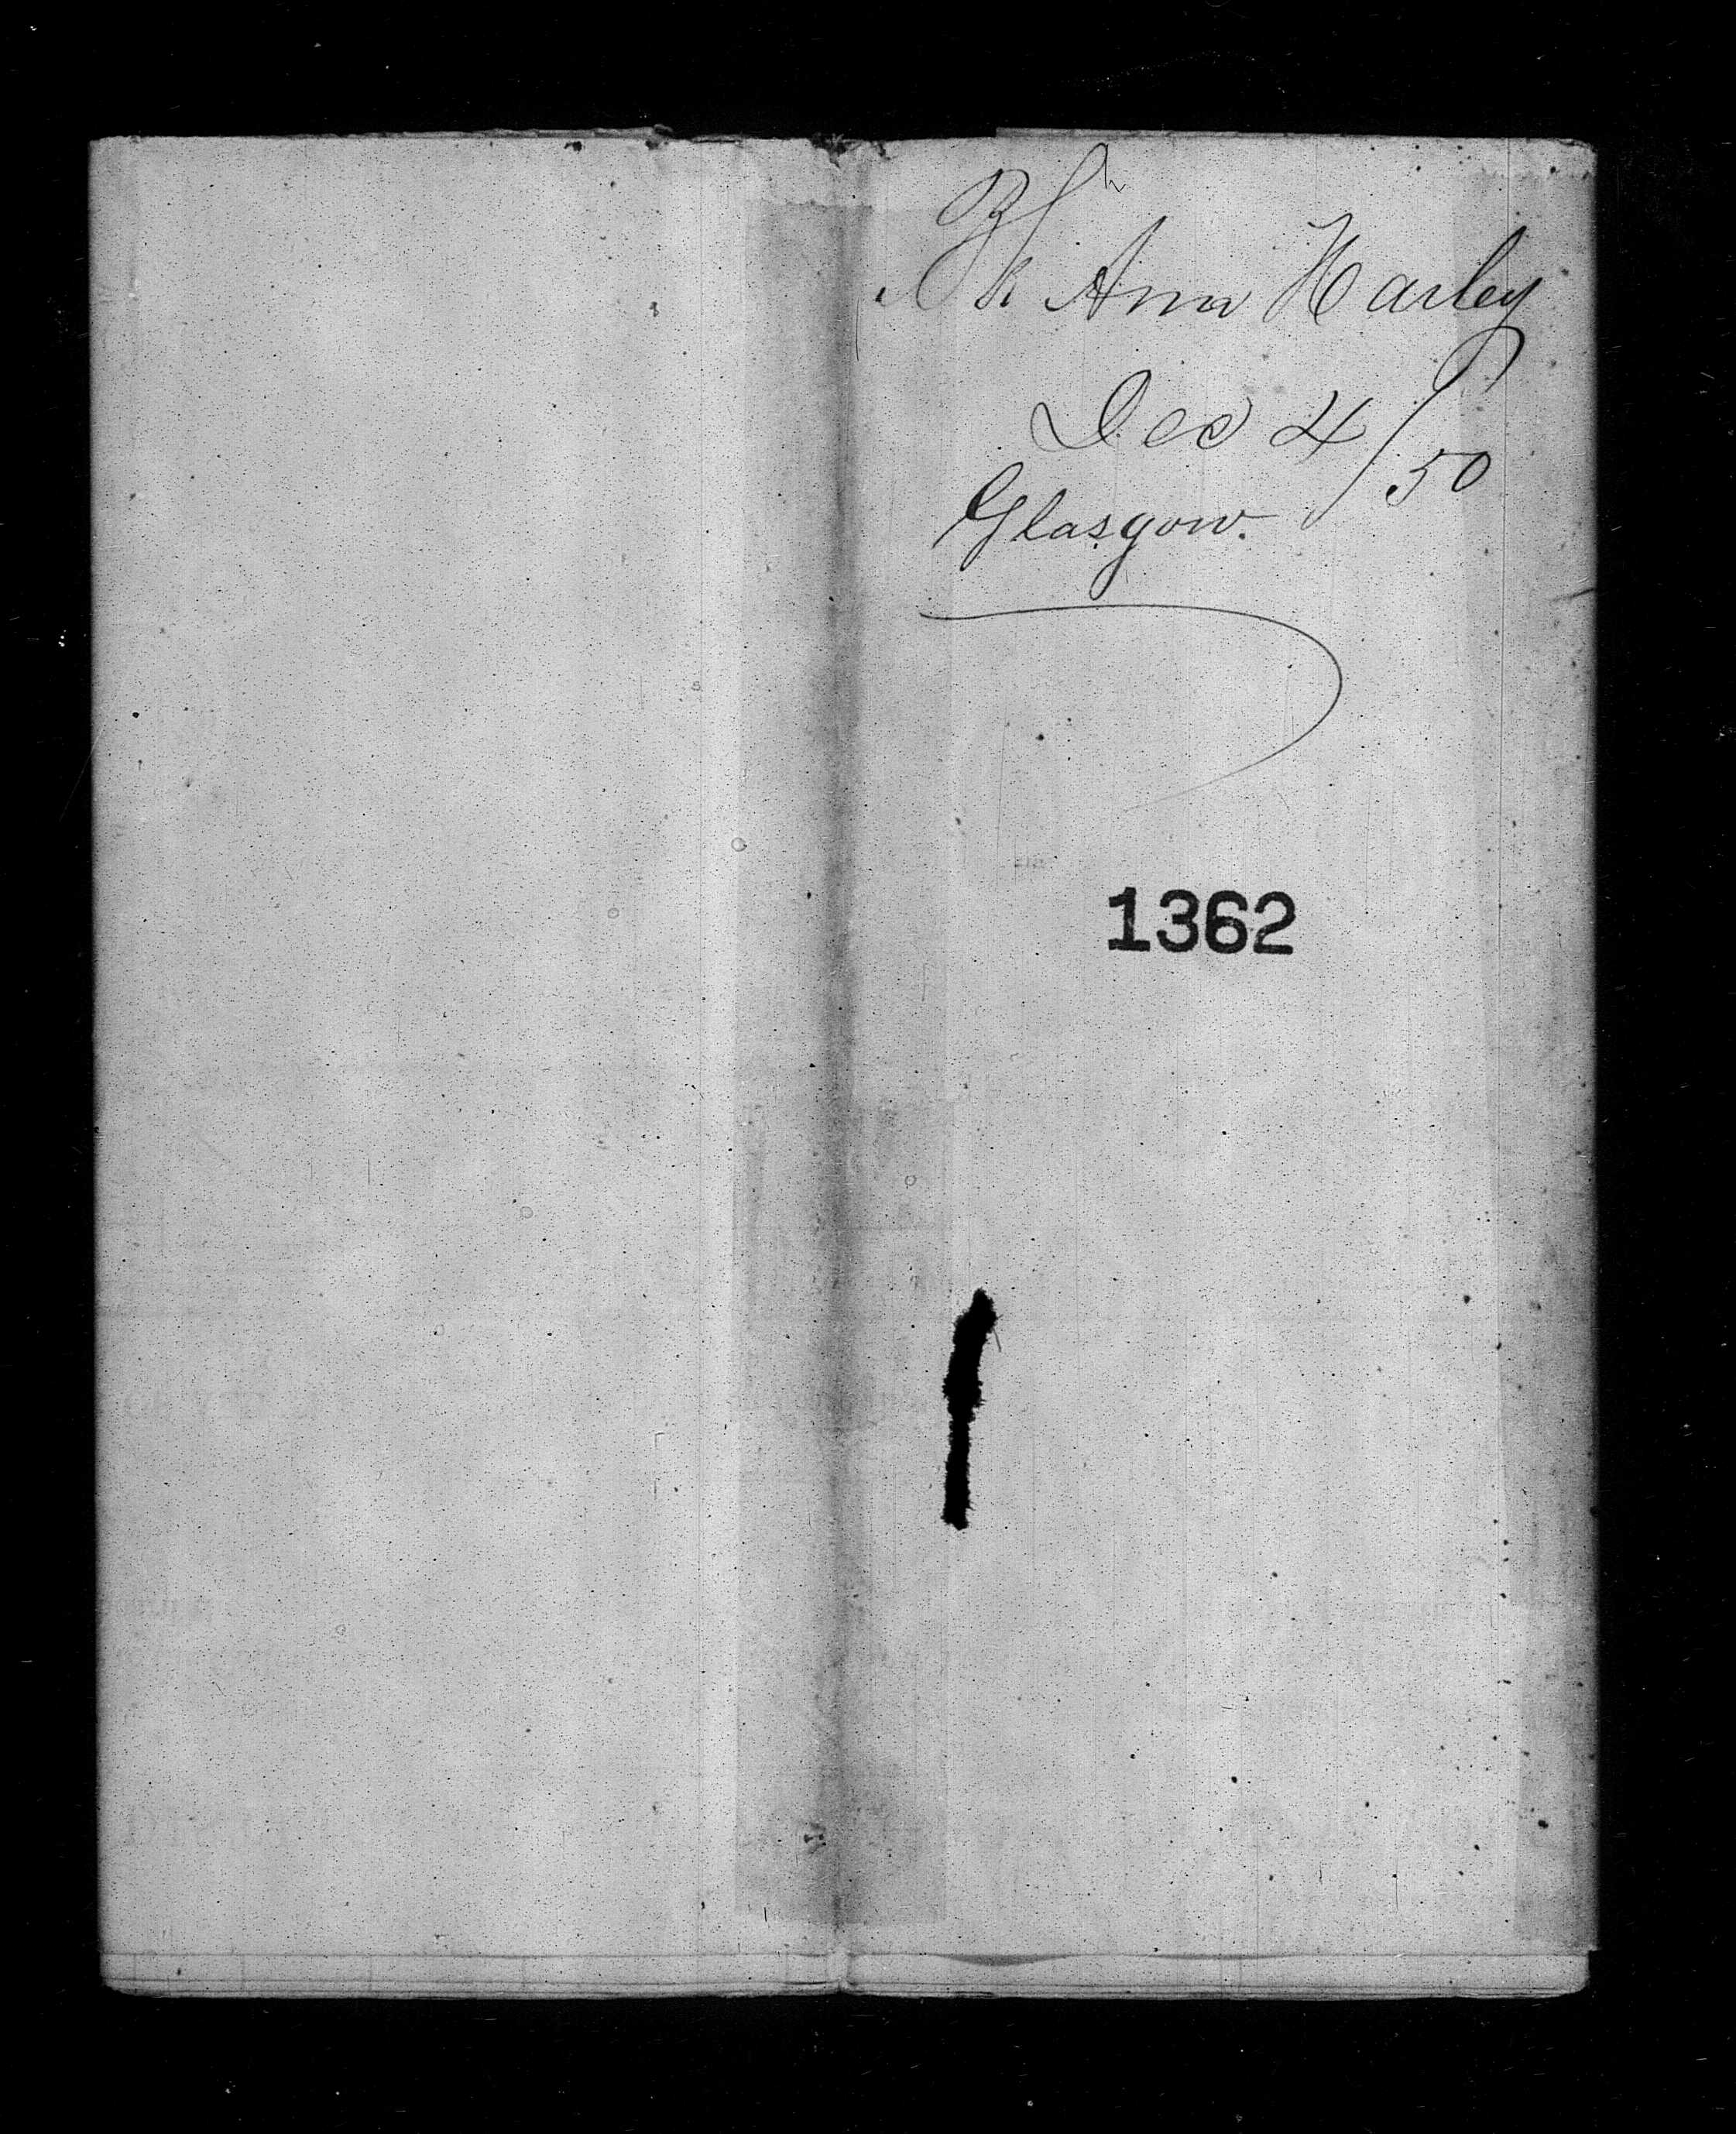 Bk Ann Harley
Dec 4/50
Glasgow.
1362